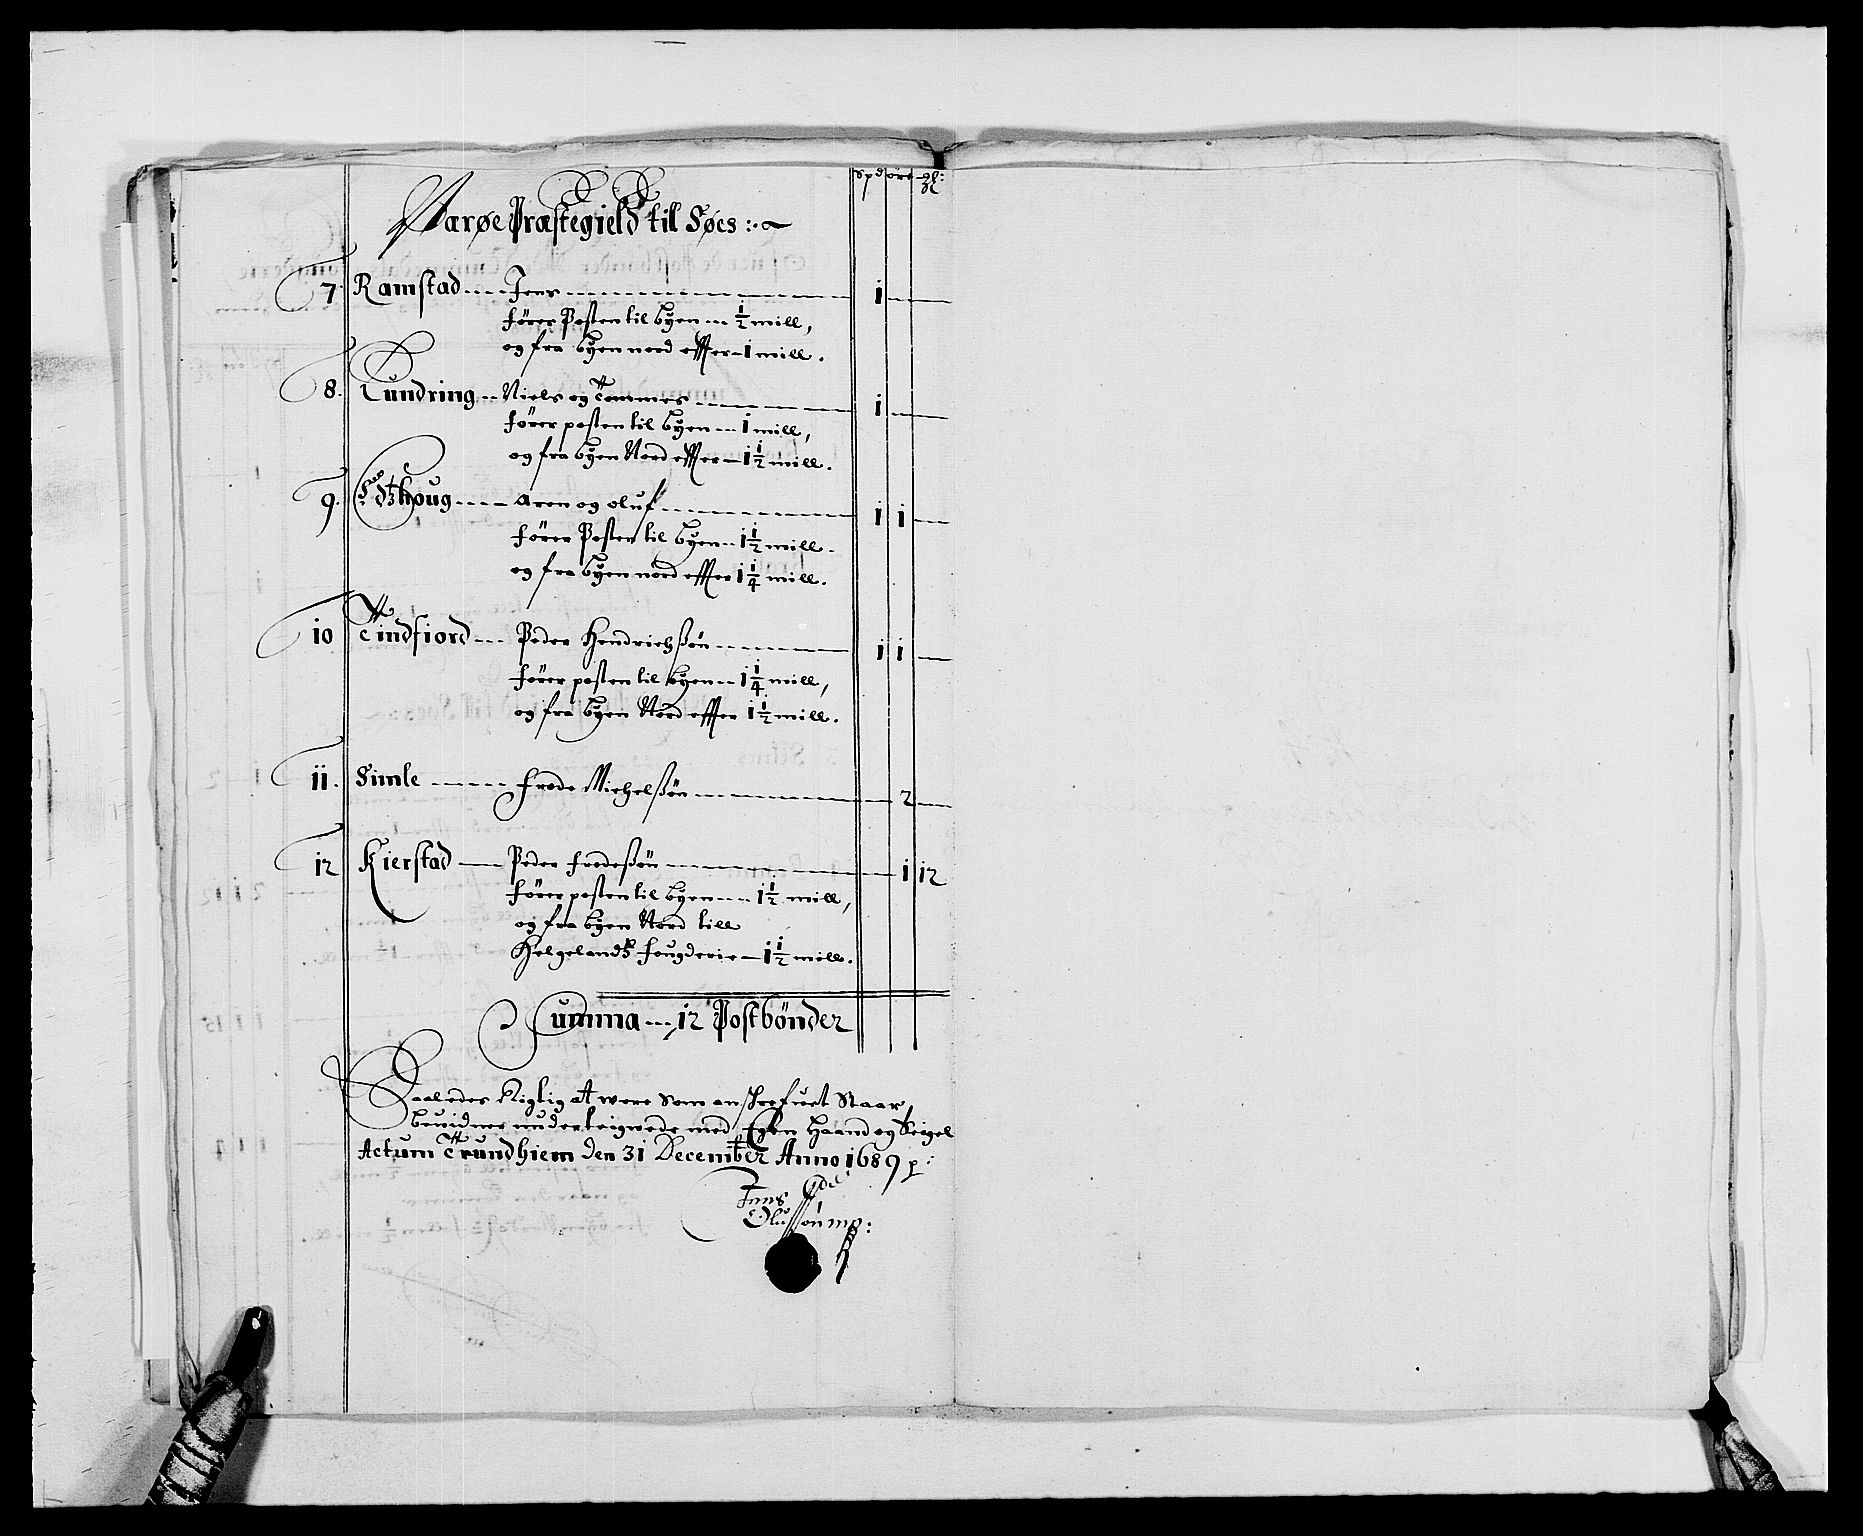 Spd ort
Narøe Præstegield till Søes:
7. Ramstad Jens 1
fører Posten til byen ½ mill,
og fra byen nord effter 1 mill.
8. Lundring Niels og Tommes 1
fører posten til byen 1 mill,
og fra byen Nord effter 1½ mill.
9. Edtzhoug Aren og oluf 1 1
fører Posten til byen 1½ mill.
og fra byen nord effter 1¼ mill.
10 Tindfiord Peder Hendrichßøn 1 1
fører posten til byen 1¼ mill,
og fra byen Nord effter 1½ mill.
11. Simle frede Michelßøn 2
12 Kierstad Peder fredeßøn 1 12
fører posten til byen 1½ mill,
og fra byen Nord till
Helgelandß fougderie 1½ mill.
Summa 12 Postbønder
Saaledes Rigtig at were som anschrefuet Staar,
beuidner underteignede med Egen Haand og Seigel
Actum Trundhiem den 31 December Anno 1689
Jens
Olufsøn mp: